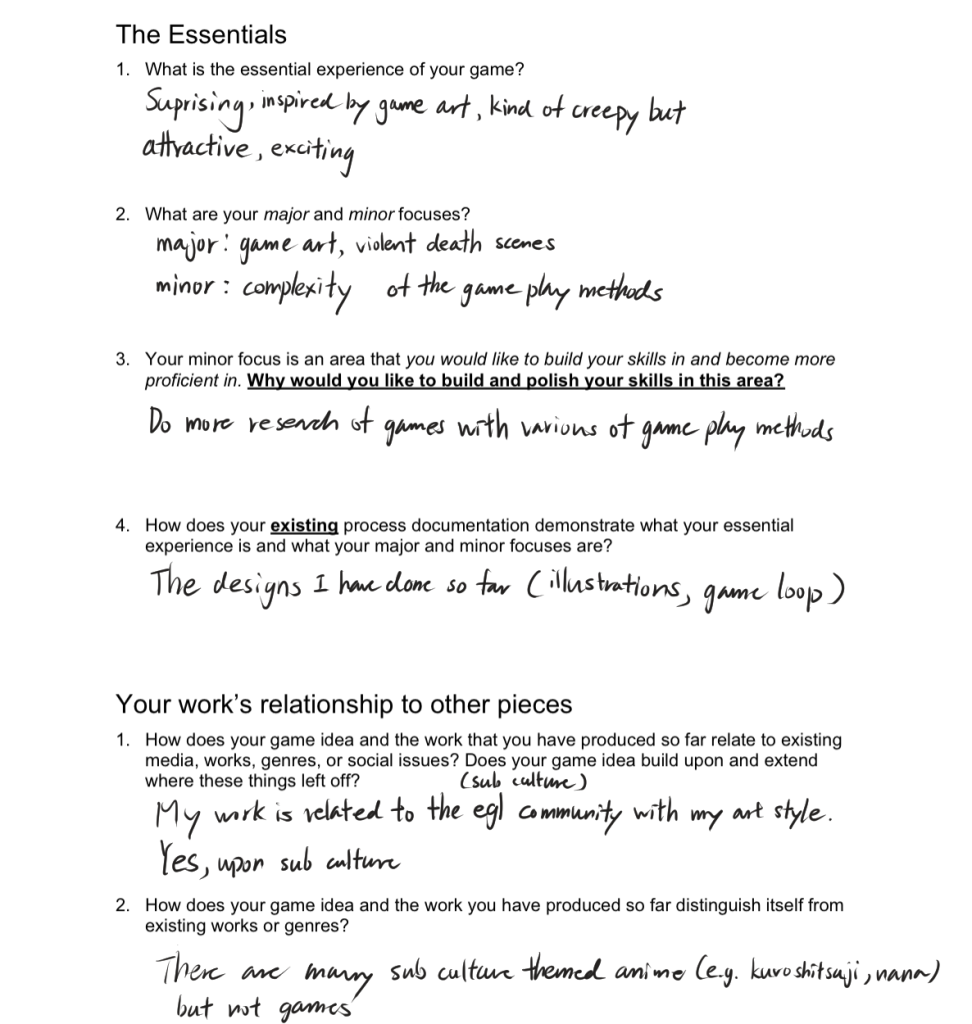 The Essentials
1. What is the essential experience of your game?
Suprising, inspired by game art, kind of creepy but
attractive, exciting
2. What are your major and minor focuses?
major: game art, violent death scenes
minor: complexity of the game play methods
3. Your minor focus is an area that you would like to build your skills in and become more
proficient in. Why would you like to build and polish your skills in this area?
Do more research of games with various of game play methods
4. How does your existing process documentation demonstrate what your essential
experience is and what your major and minor focuses are?
The designs I have done so far (illustrations, game loop)
Your work's relationship to other pieces
1. How does your game idea and the work that you have produced so far relate to existing
media, works, genres, or social issues? Does your game idea build upon and extend
where these things left off?
(sub culture)
My work is related to the egl community with my art style.
Yes, upon sub culture
2. How does your game idea and the work you have produced so far distinguish itself from
existing works or genres?
There are many sub culture themed anime (e.g. kuroshitsuji, nana)
but not games